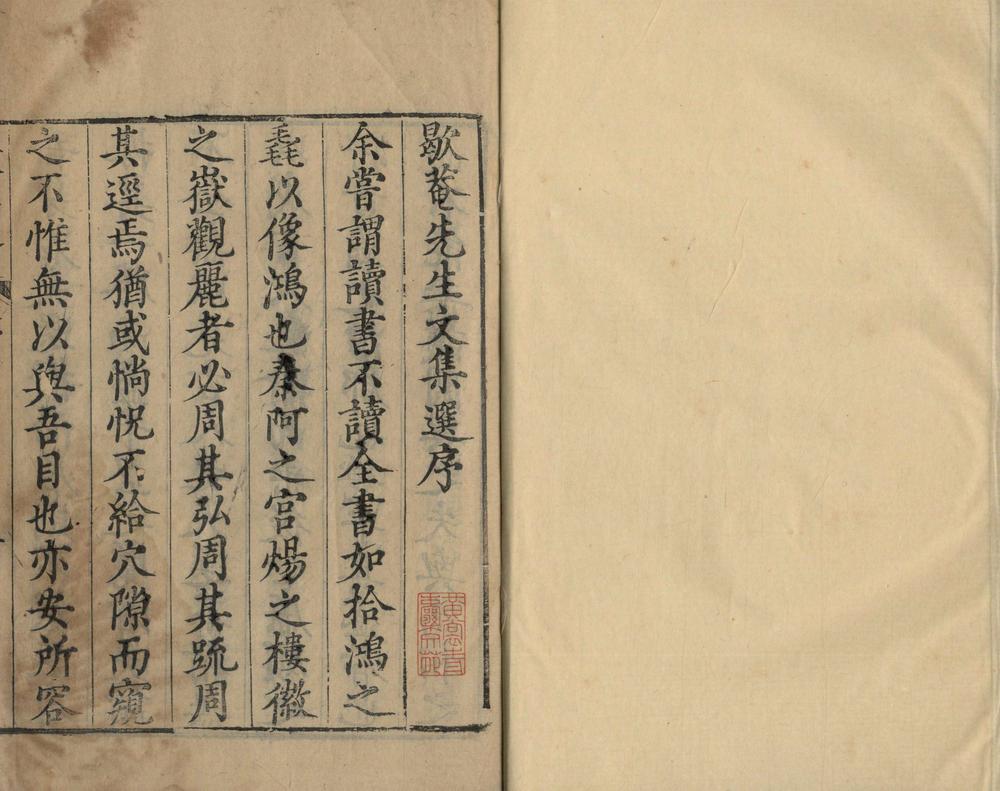 歇菴先生文集選序
余嘗謂讀書不讀全書如拾鴻之
毳以像鴻也秦阿之宮煬之樓徽
之嶽觀麗者必周其弘周其疏周
其逕焉猶或惝怳不給穴隙而窺
之不惟無以與吾目也亦安所容